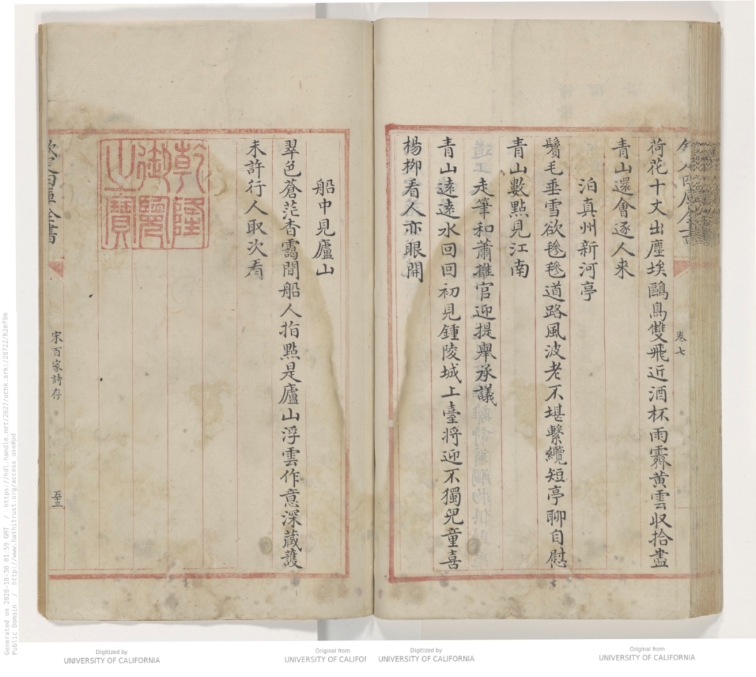 荷花十丈出塵埃鷗鳥雙飛近酒杯雨霽黃雲収拾盡
青山還會逐人来
泊真州新河亭
鬢毛垂雪欲毵毵道路風波老不堪繫纜短亭聊自慰
青山數點見江南
走筆和蕭推官迎提舉承議
青山遠遠水回回初見鍾陵城上臺將迎不獨兒童喜
楊柳看人亦眼開
卷七
船中見廬山
翠色蒼茫杳靄間船人指點是廬山浮雲作意深藏護
未許行人取次看
乾隆
御覽
之寶
欽定四庫全書
宋百家詩存
Generated on 2020-10-30 01:59 GMT
Public Domain
Digitized by
UNIVERSITY OF CALIFORNIA
Original from
UNIVERSITY OF CALIFOR
Digitized by
UNIVERSITY OF CALIFORNIA
Original from
UNIVERSITY OF CALIFORNIA